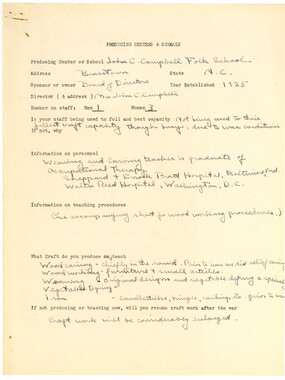 PRODUCING CENTERS & SCHOOLS
Producing Center or School John C. Campbell Folk School
Address Brasstown State N.C.
Sponsor or owner Board of Directors Year Established 1925
Director (& address) Mrs John C. Campbell
Number on staff: Men 1 Women 3
Is your staff being used to full and best capacity Not being used to their
fullest craft capacity though busy, due to war conditions
If not, why
Information on personnel
Weaving and carving teacher is graduate of
Occupational Therapy
Sheppard & Enoch Pratt Hospital, Baltimore, Md.
Walter Reed Hospital, Washington, D.C.
Information on teaching procedures
(See accompanying sheet for wood working procedures.)
What Craft do you produce or teach
Wood carving - chiefly in the round. Prior to war did relief carving
Wood working - furniture & small articles.
Weaving - Original designs and vegetable dyeing &
Vegetable Dyeing
Iron - candlesticks, hinges, railings, etc. prior to
If not producing or teaching now, will you resume craft work after the war
Craft work will be considerably enlarged.